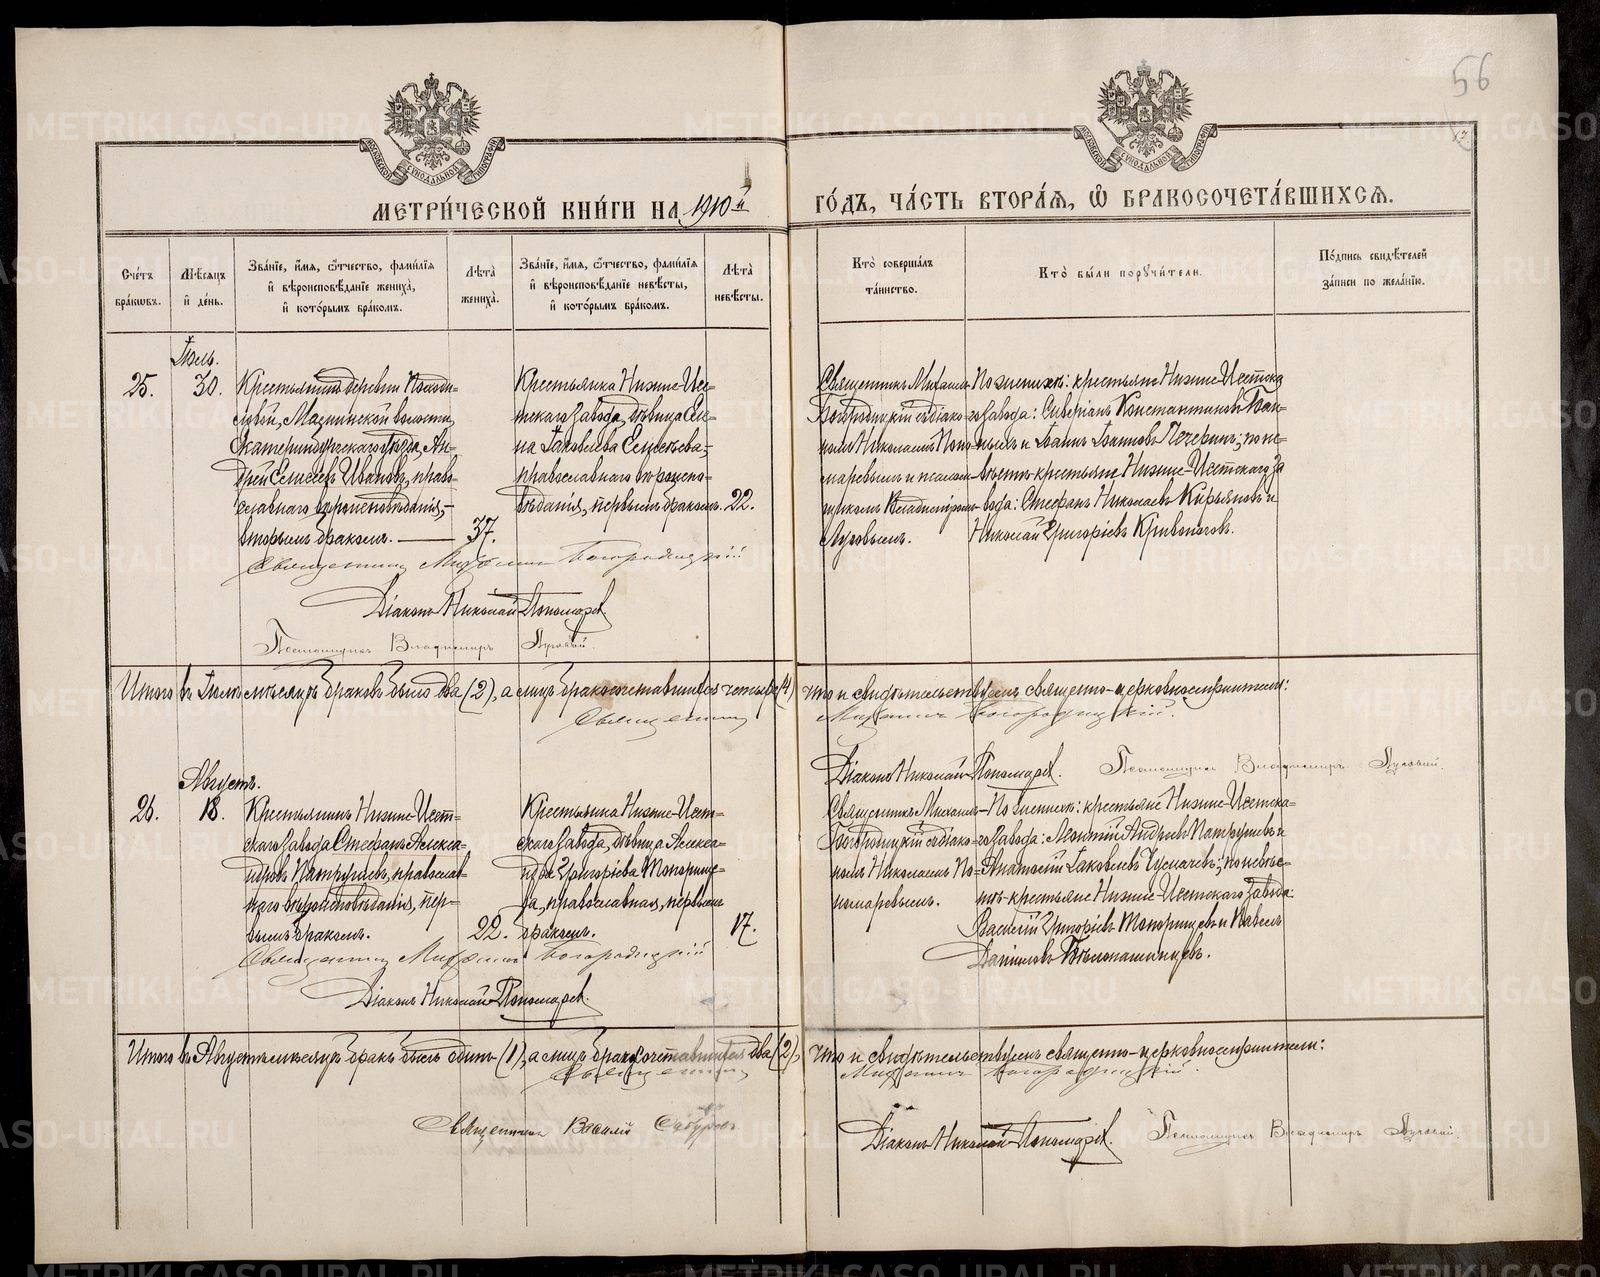 56
МЕТРИ́ЧЕСКОЙ КНИ́ГИ НА 1910й ГО́ДЪ, ЧА́СТЬ ВТОРА́Я, Ѡ БРАКОСОЧЕТА́ВШИХСЯ.
Сче́тъ бра́ковъ.
Мѣ́сяцъ и де́нь.
Зва́нїе, и́мя, о́тчество, фами́лїя и вѣроисповѣ́данїе жениха̀, и кото́рымъ бра́комъ.
Лѣ́та жениха̀.
Зва́нїе, и́мя, о́тчество, фами́лїя и вѣроисповѣ́данїе невѣ́сты, и кото́рымъ бра́комъ.
Лѣ́та невѣ́сты.
Кто̀ соверша́лъ та́инство.
Кто̀ бы́ли поручи́тели.
По́дпись свидѣ́телей за́писи по жела́нїю.
Іюль.
25.
30.
Крестьянинъ деревни
Маминской волости,
Екатеринбургскаго уѣзда, Ан-
дрей Елисеевъ Ивановъ, право-
славнаго вѣроисповѣданія,-
вторымъ бракомъ.
37.
Крестьянка Нижне-Исет-
скаго завода, дѣвица Еле-
на Іаковлева
православнаго вѣроиспо-
вѣданія, первымъ бракомъ.
22.
Священникъ Михаилъ
Богородицкій съ діако-
номъ Николаемъ Поно-
маревымъ и псалом-
щикомъ Владиміромъ
Луговымъ.
По женихѣ: крестьяне Нижне-Исетска-
го завода: Сиверіанъ Константиновъ
и Іоаннъ Іоанновъ Печеринъ; по не-
вѣстѣ: крестьяне Нижне-Исетскаго за
вода: Стефанъ Николаевъ Кирьяновъ и
Николай Григоріевъ Кривоноговъ.
Священникъ Михаилъ Богородицкій
Діаконъ Николай Пономаревъ
Псаломщикъ Владиміръ Луговый.
Итого въ Іюлѣ мѣсяцѣ браковъ было два (2), а лицъ бракосочетавшихся четыре (4) что и свидѣтельствуемъ священно-церковнослужители:
Священникъ Михаилъ Богородицкій.
Діаконъ Николай Пономаревъ. Псаломщикъ Владиміръ Луговый.
Августъ.
26.
18.
Крестьянинъ Нижне-Исет-
скаго завода Стефанъ Алекса-
ндровъ Патрушевъ, православ-
наго вѣроисповѣданія, пер-
вымъ бракомъ.
22.
Крестьянка Нижне-Исет-
скаго завода, дѣвица Алекса-
ндра Григорьева Топорище-
ва, православная, первымъ
бракомъ.
17.
Священникъ Михаилъ
Богородицкій съ діако-
номъ Николаемъ По-
номаревымъ.
По женихѣ: крестьяне Нижне-Исетска-
го завода: Леонтій Андреевъ Патрушевъ и
Анатолій Іаковлевъ Чусмачевъ; по невѣс-
тѣ: крестьяне Нижне-Исетскаго завода:
Василій Григоріевъ Топорищевъ и Павелъ
Даніиловъ Бѣлоносшинцевъ.
Священникъ Михаилъ Богородицкій
Діаконъ Николай Пономаревъ.
Итого въ Августѣ мѣсяцѣ бракъ былъ одинъ (1), а лицъ бракосочетавшихся два (2), что и свидѣтельствуемъ священно-церковнослужители:
Священникъ Михаилъ Богородицкій.
Священникъ Василій
Діаконъ Николай Пономаревъ. Псаломщикъ Владиміръ Луговый.
METRIKI.GASO-URAL.RU